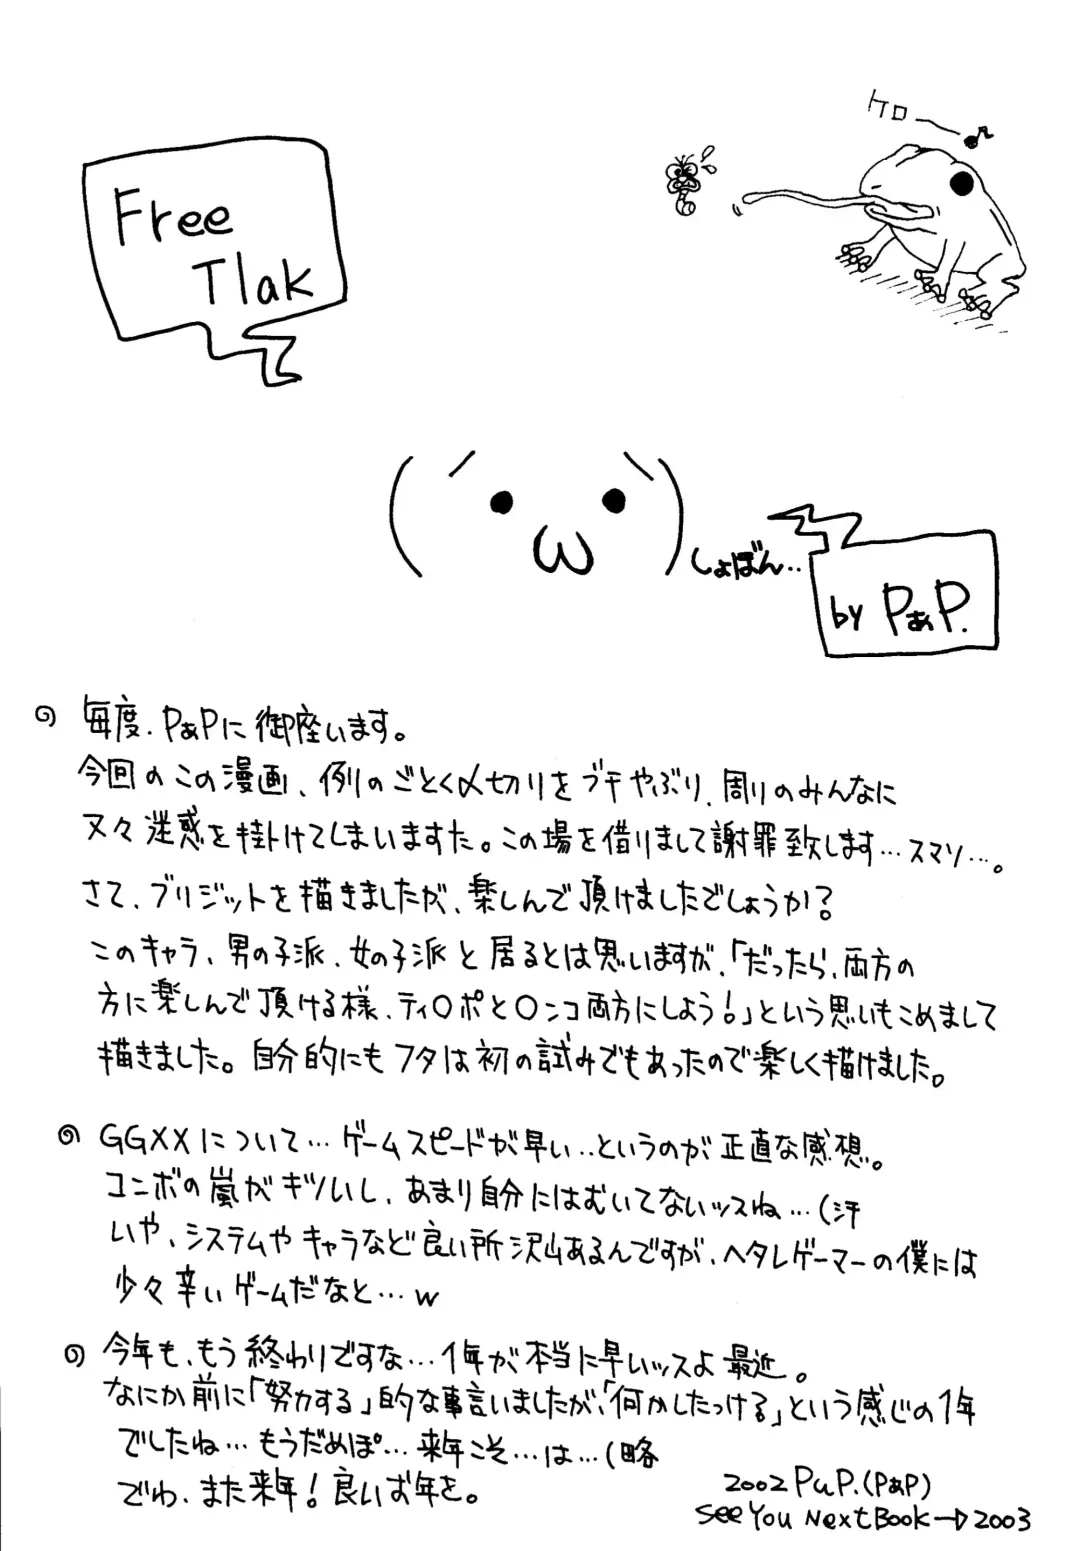 ケロー♪
Free
Tlak
(´・ω・`)しょぼん‥
by PあP.
毎度．PあPに御座います。
今回のこの漫画、例のごとく〆切りをブチやぶり、周りのみんなに
又々迷惑を掛けてしまいますた。この場を借りまして謝罪致します…スマソ…。
さて、ブリジットを描きましたが、楽しんで頂けましたでしょうか?
このキャラ、男の子派、女の子派と居るとは思いますが、「だったら、両方の
方に楽しんで頂ける様、ティ〇ポと〇ンコ両方にしよう!」という思いもこめまして
描きました。自分的にもフタは初の試みでもあったので楽しく描けました。
GGXXについて…ゲームスピードが早い‥というのが正直な感想。
コンボの嵐がキツいし、あまり自分にはむいてないッスね…(汗
いや、システムやキャラなど良い所沢山あるんですが、ヘタレゲーマーの僕には
少々辛いゲームだなと…w
今年も、もう終わりですな…1年が本当に早いッスよ最近。
なにか前に「努力する」的な事言いましたが、「何かしたっける」という感じの1年
でしたね…もうだめぽ…来年こそ…は…(略
でわ、また来年!良いお年を。
2002 PuP.(PあP)
See You Next Book→2003